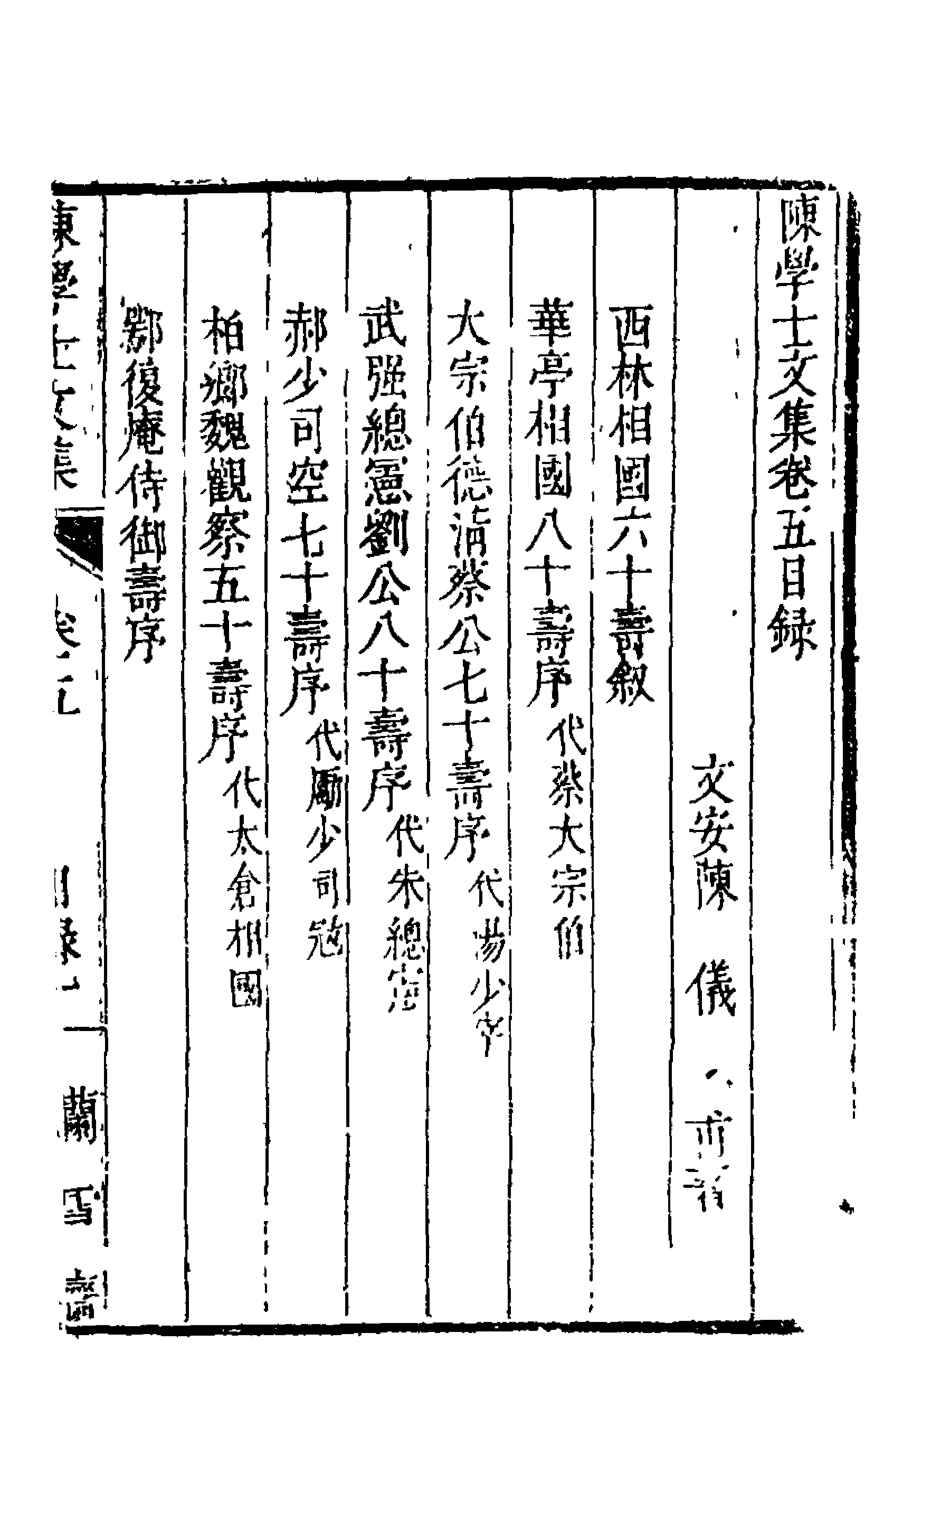 陳學士文集卷五目録
文安陳 儀
西林相國六十壽敘
華亭相國八十壽序 代蔡大宗伯
大宗伯德清蔡公七十壽序 代湯少宰
武强總憲劉公八十壽序 代朱總憲
郝少司空七十壽序 代勵少司寇
柏鄉魏觀察五十壽序 代太倉相國
鄒復菴侍御壽序
陳學士文集 卷五 目録一 蘭雪齋